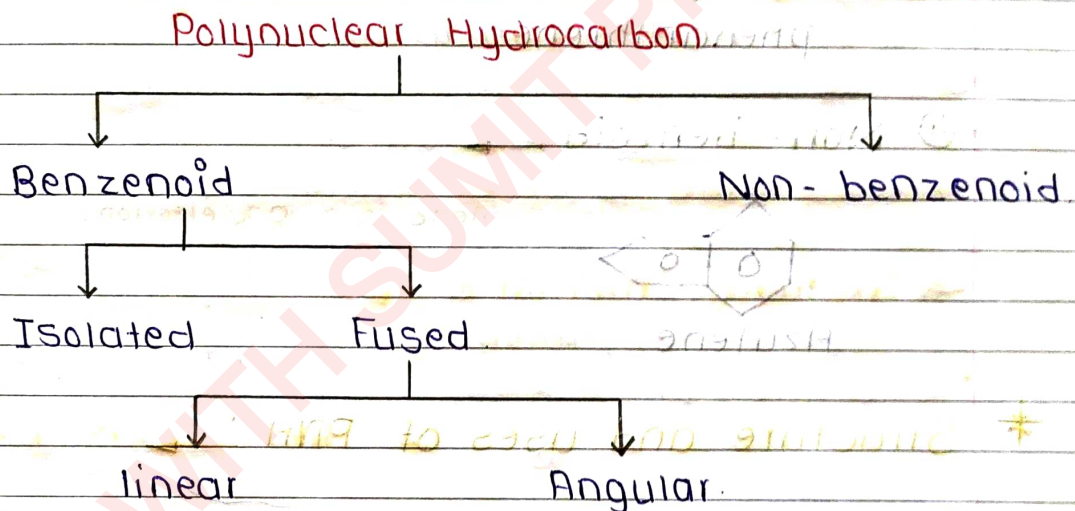 Polynuclear Hydrocarbon.
Benzenoid Non-benzenoid.
Isolated Fused
linear Angular.
WITH SUMIT